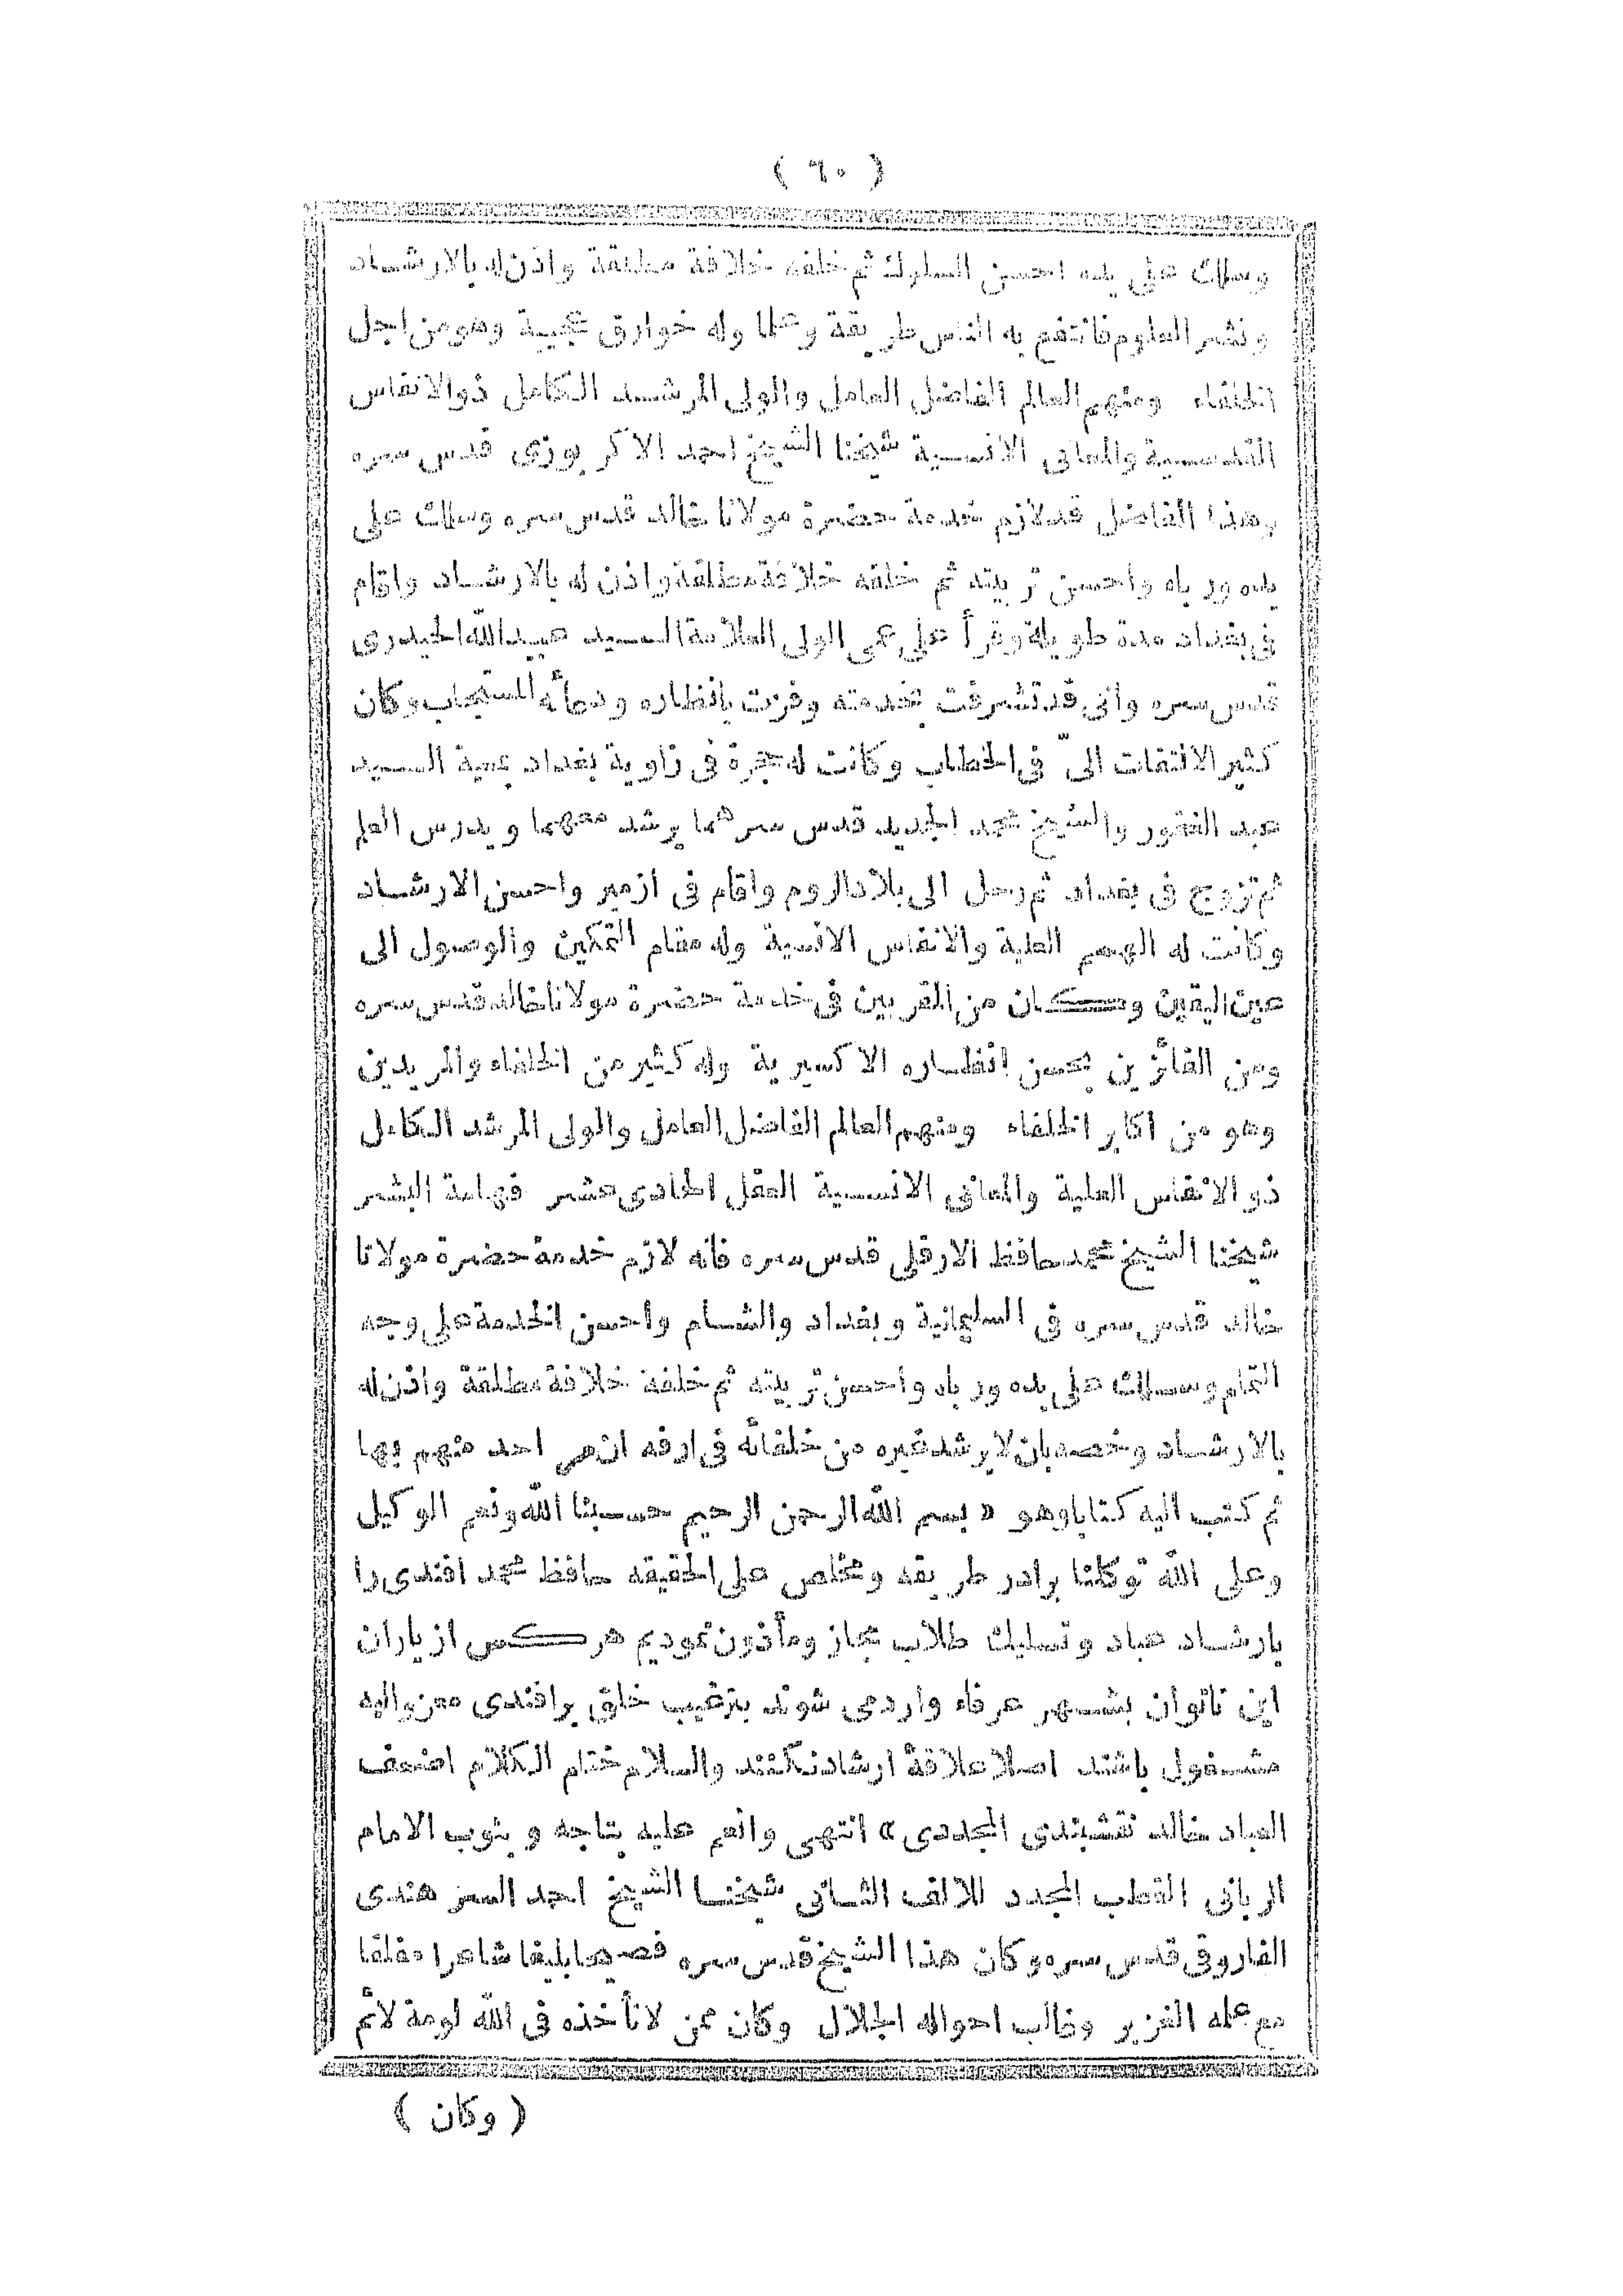 ( ٦٠ )
وسلك على يده احسن السلوك ثم خلفه خلافة مطلقة واذن له بالارشاد
ونشر العلوم فانتفع به الناس طريقة وعلما وله خوارق عجيبة وهو من اجل
الخلفاء ومنهم العالم الفاضل العامل والولى المرشد الكامل ذو الانفاس
القدسية والمعانى الانسية شيخنا الشيخ احمد الاكربوزى قدس سره
وهذا الفاضل قد لازم خدمة حضرة مولانا خالد قدس سره وسلك على
يده ورباه واحسن تربيته ثم خلفه خلافة مطلقة واذن له بالارشاد واقام
فى بغداد مدة طويلة وقرأ على عمى الولى العلامة السيد عبيد الله الحيدرى
قدس سره وانى قد تشرفت بخدمته وفزت بانظاره ودعائه المستجاب وكان
كثير الالتفات الىّ فى الخطاب وكانت له حجرة فى زاوية بغداد بمعية السيد
عبد الغفور والشيخ محمد الجديد قدس سرهما يرشد معهما ويدرس العلم
ثم تزوج فى بغداد ثم رحل الى بلاد الروم واقام فى ازمير واحسن الارشاد
وكانت له الهمم العلية والانفاس الانسية وله مقام التمكين والوصول الى
عين اليقين وكان من المقربين فى خدمة حضرة مولانا خالد قدس سره
ومن الفائزين بحسن انظاره الاكسيرية وله كثير من الخلفاء والمريدين
وهو من اكابر الخلفاء ومنهم العالم الفاضل العامل والولى المرشد الكامل
ذو الانفاس العلية والمعانى الانسية العقل الحادى عشر فهامة البشر
شيخنا الشيخ محمد حافظ الارفلى قدس سره فانه لازم خدمة حضرة مولانا
خالد قدس سره فى السليمانية وبغداد والشام واحسن الخدمة على وجه
التمام وسلك على يده ورباه واحسن تربيته ثم خلفه خلافة مطلقة واذن له
بالارشاد وخصه بان لا يرشد غيره من خلفائه فى ارفه ان مر احد منهم بها
ثم كتب اليه كتابا وهو « بسم الله الرحمن الرحيم حسبنا الله ونعم الوكيل
وعلى الله توكلنا برادر طريقه ومخلص على الحقيقه حافظ محمد افندى را
بارشاد عباد وتسليك طلاب مجاز ومأذون نموديم هركس از ياران
اين ناتوان بشهر عرفاء وارد مى شوند بترغيب خلق برافندى معزواليه
مشغول باشند اصلا علاقهٔ ارشاد نكنند والسلام ختام الكلام اضعف
العباد خالد نقشبندى المجددى » انتهى وانعم عليه بتاجه وبثوب الامام
الربانى القطب المجدد للالف الثانى شيخنا الشيخ احمد السرهندى
الفاروقى قدس سره وكان هذا الشيخ قدس سره فصيحا بليغا شاعرا مفلقا
مع علمه الغزير وغالب احواله الجلال وكان ممن لا تأخذه فى الله لومة لائم
( وكان )